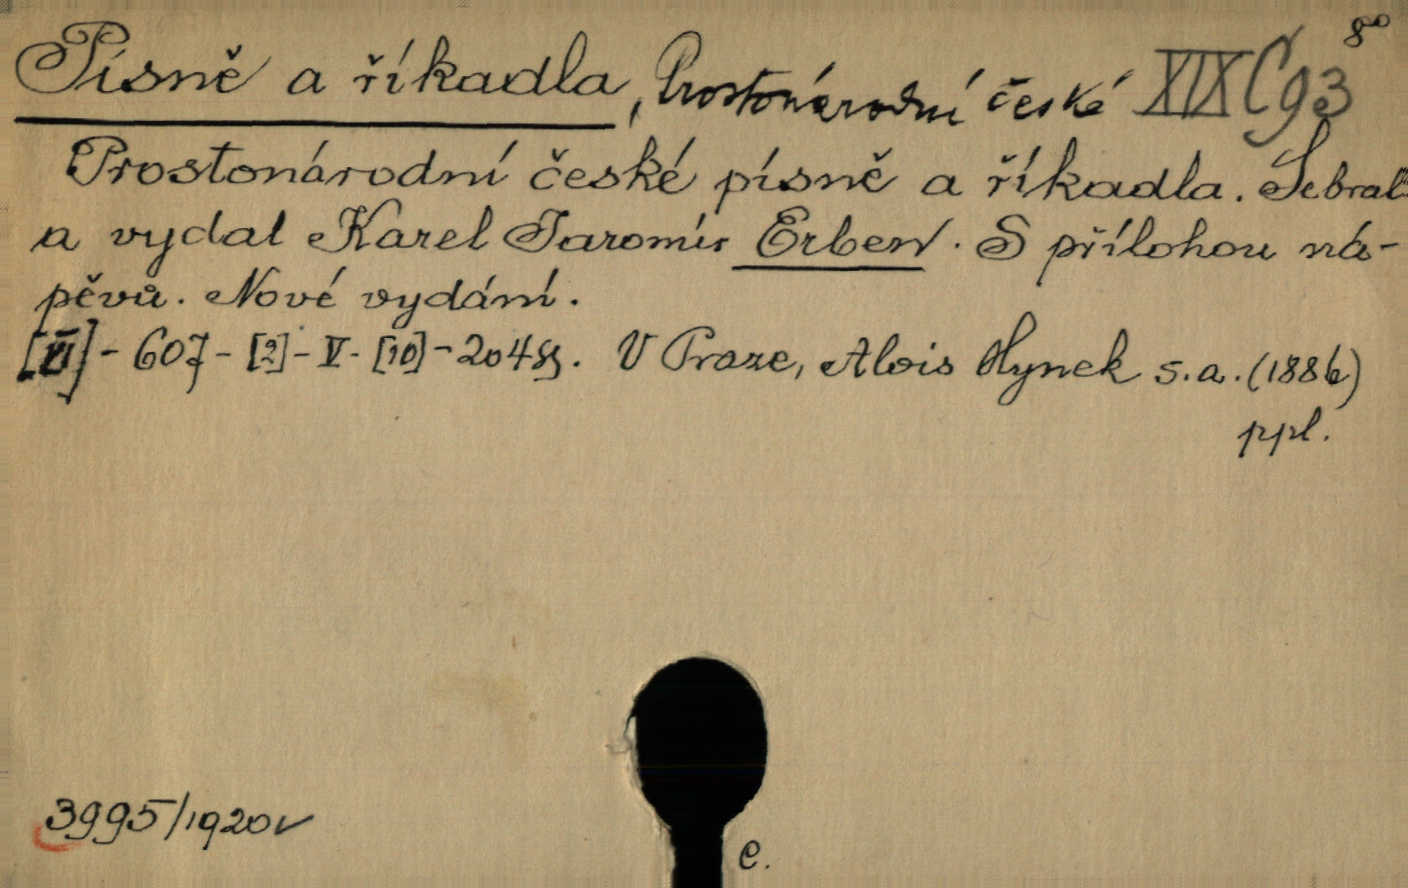 8°
Písně a říkadla, Prostonárodní české XIX C 93
Prostonárodní české písně a říkadla. Sebral
a vydal Karel Jaromír Erben. S přílohou ná-
pěvů. Nové vydání.
[VI] - 607 - [2] - V - [10] - 204 S. V Praze, Alois Hynek s.a. (1886)
ppl.
3995/1920
e.